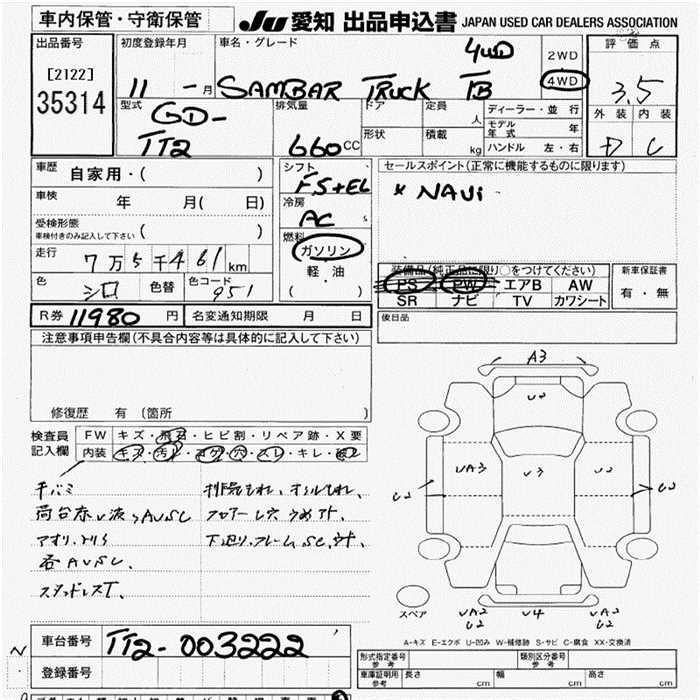 車内保管・守衛保管
JU 愛知 出品申込書 JAPAN USED CAR DEALERS ASSOCIATION
出品番号
[2122]
35314
初度登録年月
11 - 月
車名・グレード
4WD
SAMBAR TRUCK TB
2WD
4WD
評価点
3.5
外装 内装
D C
型式
GD-
TT2
排気量
660 CC
ドア
形状
定員
人
積載
kg
ディーラー・並行
モデル年式 年
ハンドル 左・右
車歴
自家用・( )
車検
年 月( 日)
受検形態
車検付きのみ記入して下さい ( )
走行
7万5千461km
色
シロ
色替
色コード
951
シフト
F5+EL
冷房
AC
燃料
ガソリン
軽・油
( ・ )
セールスポイント(正常に機能するものに限ります)
* NAVi
装備品(純正品に限り○をつけてください)
PS PW エアB AW
SR ナビ TV カワシート
新車保証書
有・無
後日品
R券 11980 円
名変通知期限 月 日
注意事項申告欄(不具合内容等は具体的に記入して下さい)
修復歴 有(箇所 )
検査員
記入欄
FW キズ・飛石・ヒビ割・リペア跡・X要
内装 キズ・汚れ・コゲ・穴・スレ・キレ・破レ
スタッドレスT.
A3
U2
UA3
U3
U2
U2
U2
UA2
U2
U4
UA2
U2
スペア
A-キズ E-エクボ U-凹み W-補修跡 S-サビ C-腐食 XX-交換済
車台番号 TT2-003222
登録番号
N
型式指定番号
参考
類別区分番号
参考
車庫証明用
参考
長さ cm 幅 cm 高さ cm